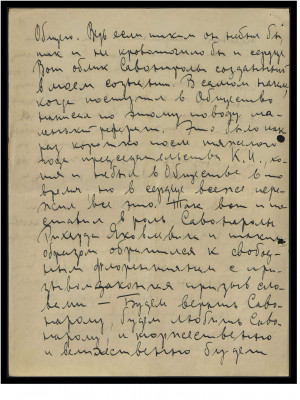 Общего. Ведь если таким он не был бы
так и не кровоточило бы и сердце
Вот облик Савонаролы созданный
в моем сознании. В самом начале
когда поступил в Общество
написал по этому поводу ма-
ленький реферат. Это было как
раз коротко после
года председательства К.И.,
я и не был в Обществе в то
время но в сердце всеже пере-
жил все это. Так вот и
ставил в роль Савонаролы
Рихарда и таким
образом обратился к свобод-
ным флорентинцам с при-
зывом закончя призыв сло-
вами — Будем верить Саво-
нароле, будем любить Саво-
наролу, и торжественно
и величественно будет